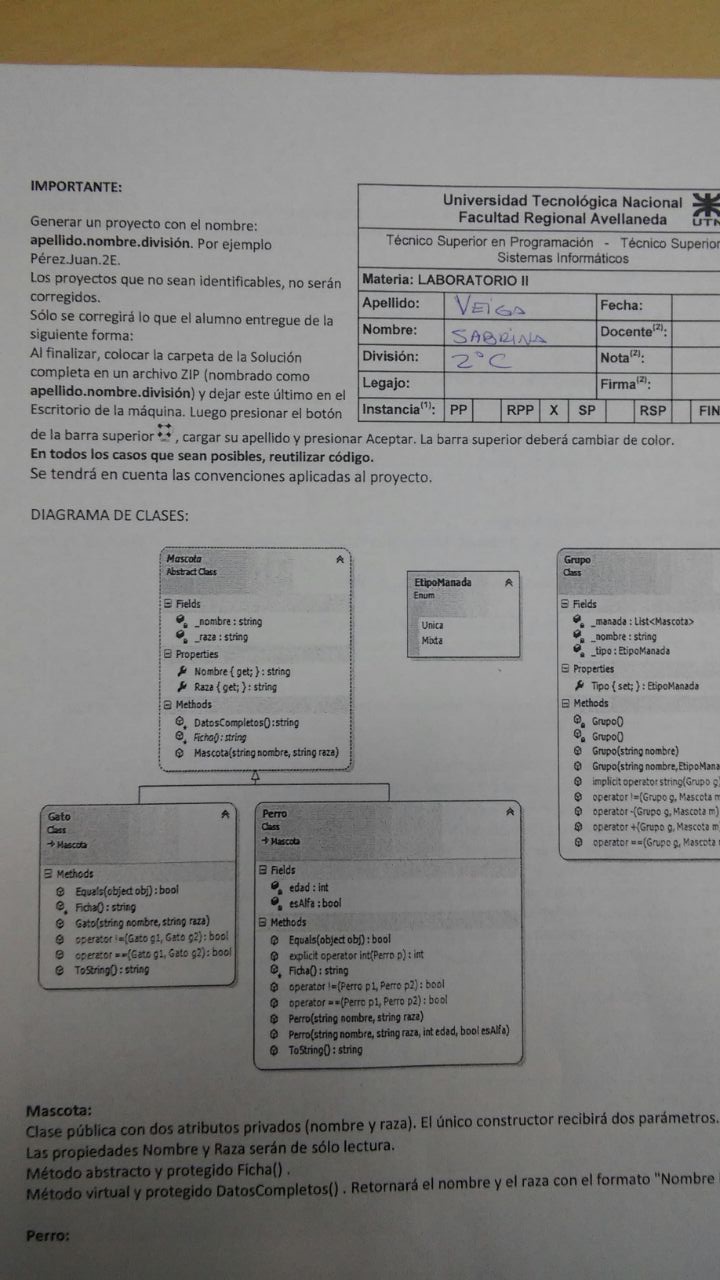 IMPORTANTE:
Generar un proyecto con el nombre:
apellido.nombre.división. Por ejemplo
Pérez.Juan.2E.
Los proyectos que no sean identificables, no serán
corregidos.
Sólo se corregirá lo que el alumno entregue de la
siguiente forma:
Al finalizar, colocar la carpeta de la Solución
completa en un archivo ZIP (nombrado como
apellido.nombre.división) y dejar este último en el
Escritorio de la máquina. Luego presionar el botón
de la barra superior , cargar su apellido y presionar Aceptar. La barra superior deberá cambiar de color.
En todos los casos que sean posibles, reutilizar código.
Se tendrá en cuenta las convenciones aplicadas al proyecto.
Universidad Tecnológica Nacional
Facultad Regional Avellaneda
UTN
Técnico Superior en Programación - Técnico Superior
Sistemas Informáticos
Materia: LABORATORIO II
Apellido: VEIGA Fecha:
Nombre: SABRINA Docente(2):
División: 2°C Nota(2):
Legajo: Firma(2):
Instancia(1): PP RPP X SP RSP FIN
DIAGRAMA DE CLASES:
Mascota
Abstract Class
Fields
_nombre : string
_raza : string
Properties
Nombre { get; } : string
Raza { get; } : string
Methods
DatosCompletos():string
Ficha() : string
Mascota(string nombre, string raza)
EtipoManada
Enum
Unica
Mixta
Grupo
Class
Fields
_manada : List<Mascota>
_nombre : string
_tipo : EtipoManada
Properties
Tipo { set; } : EtipoManada
Methods
Grupo()
Grupo()
Grupo(string nombre)
Grupo(string nombre,EtipoMana
implicit operator string(Grupo g)
operator !=(Grupo g, Mascota m
operator -(Grupo g, Mascota m)
operator +(Grupo g, Mascota m)
operator ==(Grupo g, Mascota
Gato
Class
Mascota
Methods
Equals(object obj) : bool
Ficha() : string
Gato(string nombre, string raza)
operator !=(Gato g1, Gato g2) : bool
operator ==(Gato g1, Gato g2) : bool
ToString() : string
Perro
Class
Mascota
Fields
edad : int
esAlfa : bool
Methods
Equals(object obj) : bool
explicit operator int(Perro p) : int
Ficha() : string
operator !=(Perro p1, Perro p2) : bool
operator ==(Perro p1, Perro p2) : bool
Perro(string nombre, string raza)
Perro(string nombre, string raza, int edad, bool esAlfa)
ToString() : string
Mascota:
Clase pública con dos atributos privados (nombre y raza). El único constructor recibirá dos parámetros.
Las propiedades Nombre y Raza serán de sólo lectura.
Método abstracto y protegido Ficha() .
Método virtual y protegido DatosCompletos() . Retornará el nombre y el raza con el formato "Nombre
Perro: